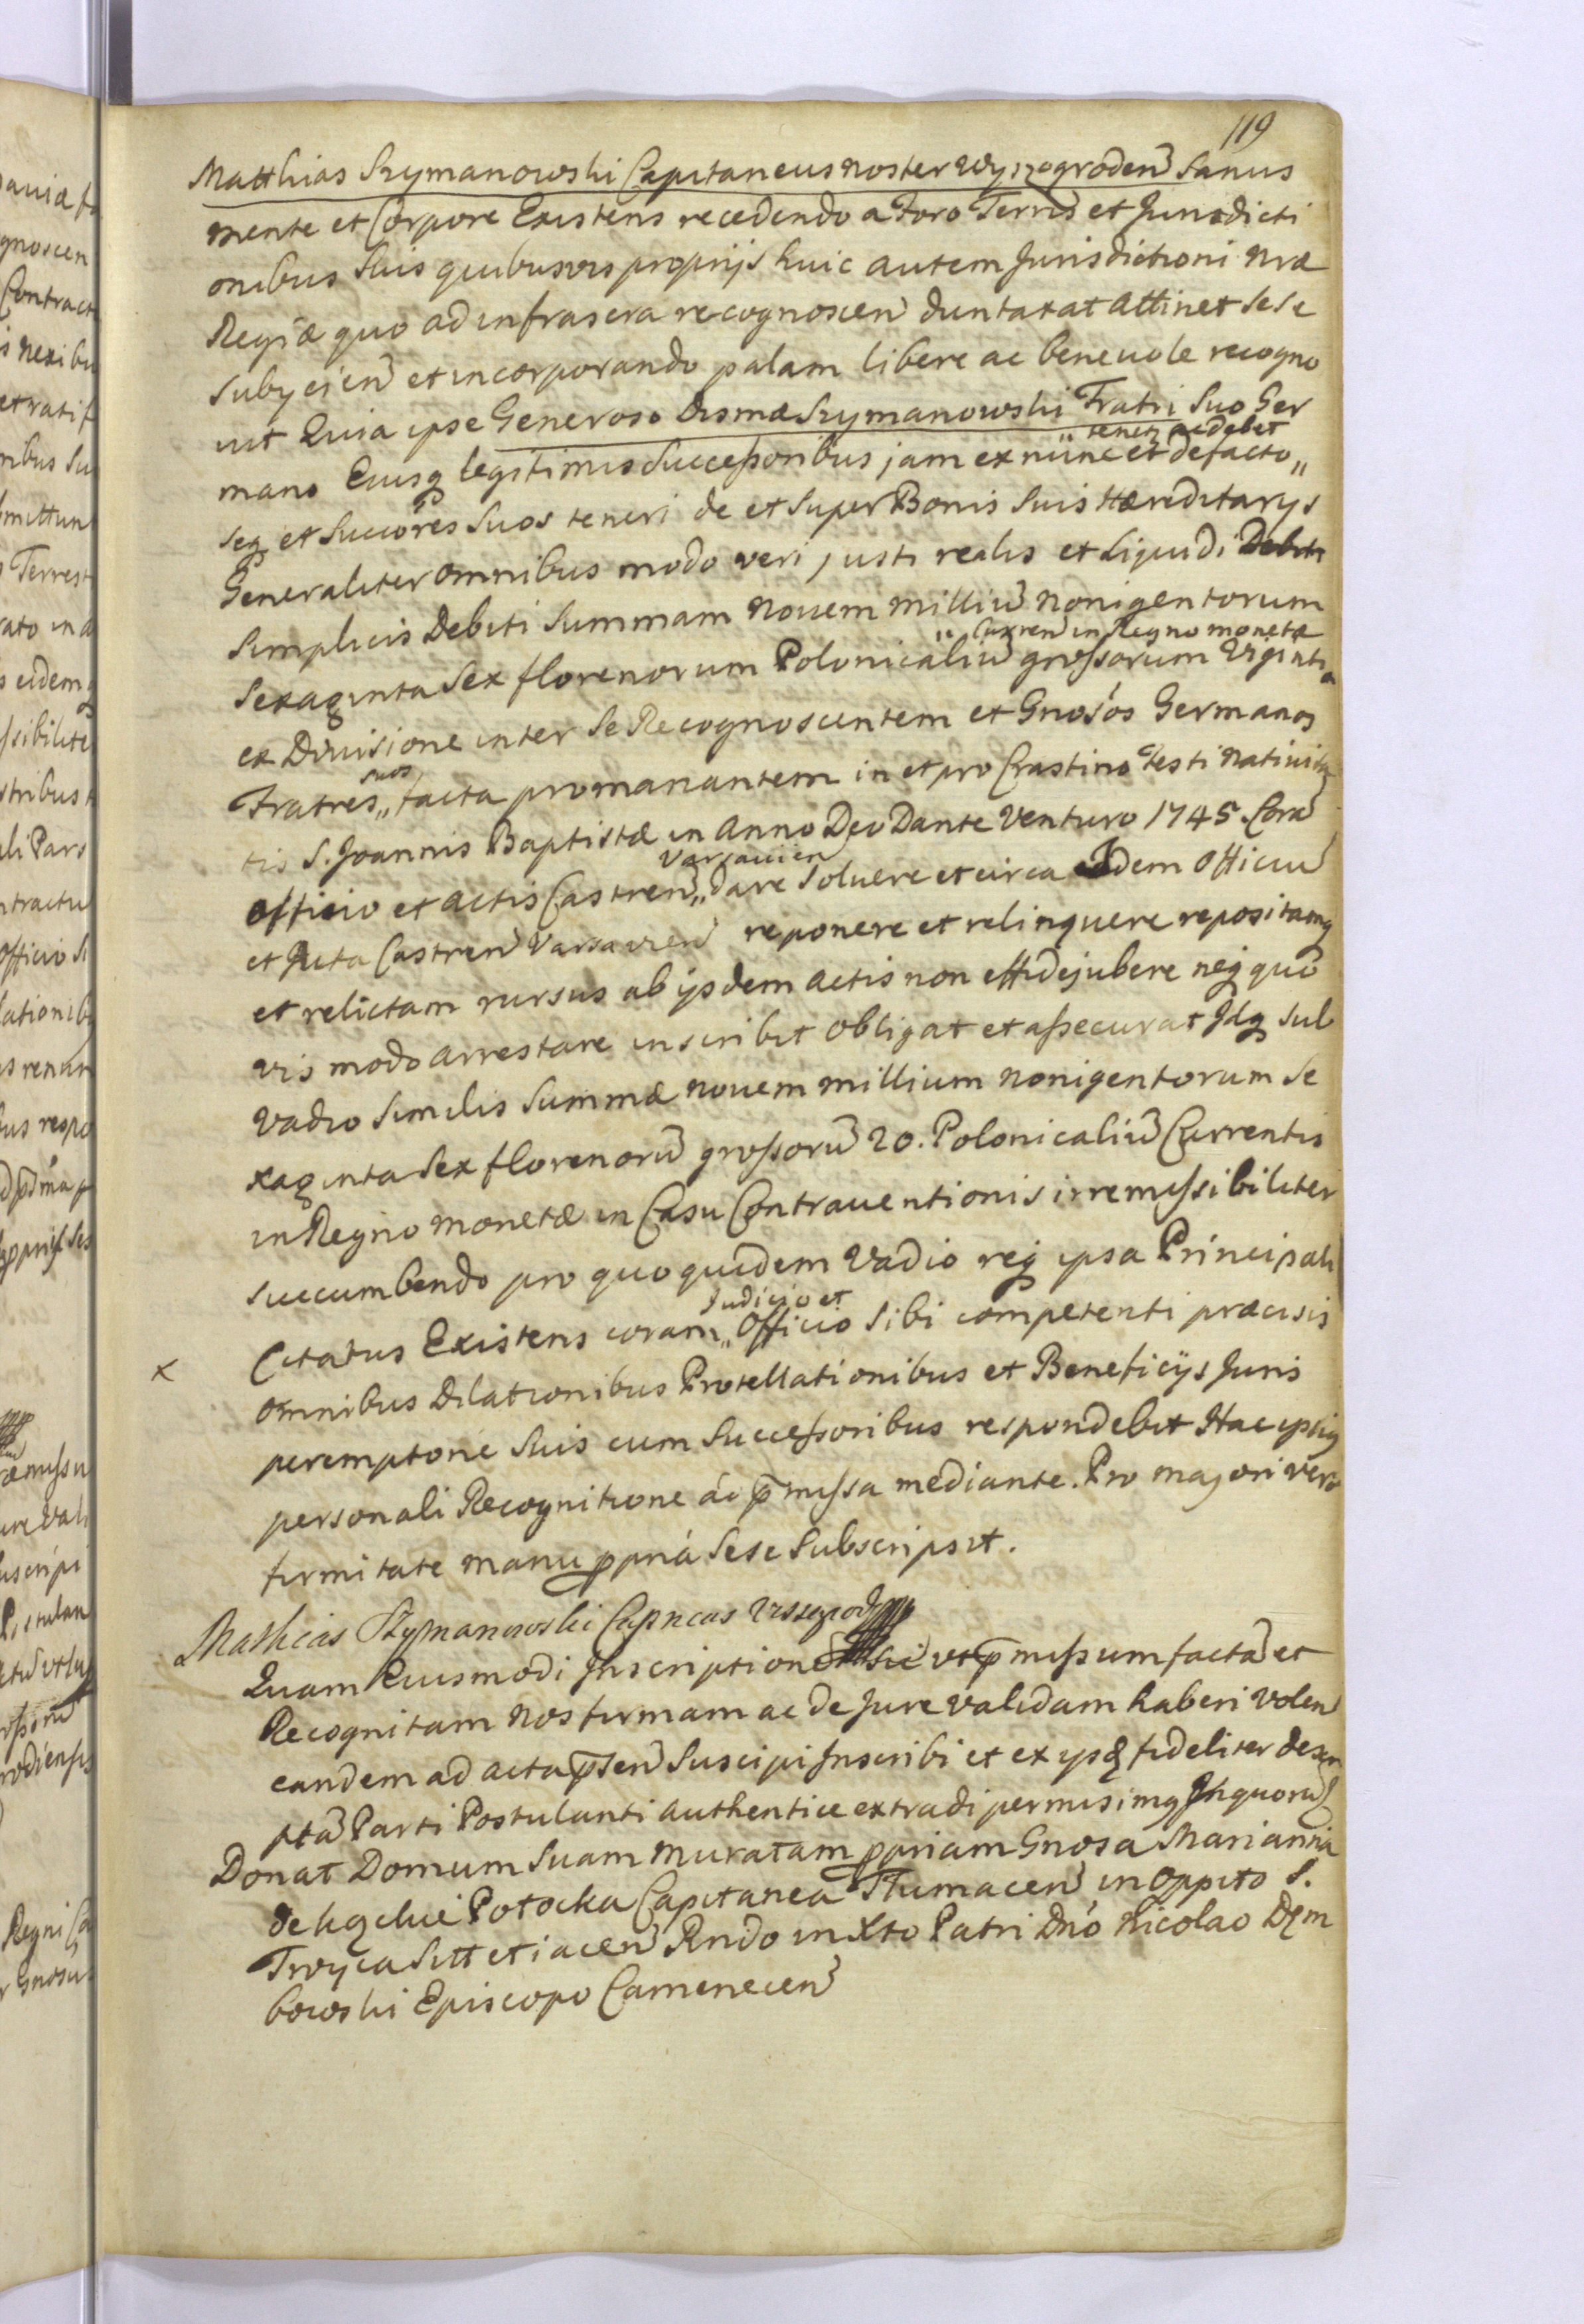 119
Matthias Szymanowski Capitaneus noster Wyszogroden Sanus
mente et Corpore Existens recedendo a Foro Terris et Jurisdicti
onibus Suis quibusvis proprijs huic autem Jurisdictioni nræ
Regiæ quo ad infrascra recognoscen duntaxat attinet sese
subycien et incorporando palam libere ac beneuole recogno
uit Quia ipse Generoso Dismæ Szymanowski Fratri Suo Ger
tenet ac debet
mano Eiusq legitimis Successoribus jam ex nunc et de facto „
seq et Succores Suos teneri de et super Bonis Suis Hæreditarys
Generaliter omnibus modo veri justi realis et liquidi Debiti
Simplicis Debiti Summam Nouem milliu nonigentorum
„ Curren in Regno monetæ
Sexaginta Sex florenorum Polonicaliu grossorum Viginti
ex Diuisione inter Se Recognoscentem et Gnosos Germanos
suos
Fratres „ facta promanantem in et pro Crastino Festi Natiuita
tis S. Joannis Baptistæ in Anno Deo Dante Venturo 1745. Cora
Varsauien
officio et actis Castren „ dare Soluere et circa Idem Officiu
et Acta Castren Varsavien reponere et relinquere repositamq
et relictam rursus ab ijsdem actis non effidejubere neq quo
vis modo arrestare inscribit obligat et assecurat Idq sub
Vadio Similis Summæ nouem millium nonigentorum Se
xaginta Sex florenoru grossoru 20. Polonicaliu Currentis
in Regno monetæ in Casu Contrauentionis irremissibiliter
succumbendo pro quo quidem Vadio req ipsa Principali
Judicio et
Citatus Existens coram „ Officio Sibi competenti præcisis
x
omnibus Dilationibus Protellationibus et Beneficijs Juris
peremptorie Suis cum Successoribus respondebit Hac ipsiq
personali Recognitione ac pmissa mediante. Pro majori vero
firmitate manu ppria Sese Subscripsit.
Mathias Szymanowski Capneas Wissegrod
Quam Eiusmodi Inscriptione sic vt pmissum facta et
Recognitam nos firmam ac de Jure validam haberi volen
eandem ad acta psen Suscipi Inscribi et ex ijsq fideliter descri
pta Parti Postulanti Authentice extradi permisimq In quoru
Donat Domum Suam muratam ppriam Gnosa Marianna
de Potocka Capitanea Tlumacen in Oppito S.
Troyca Sitt et iacen Rndo in Xto Patri Dno Nicolao Dęm
bowski Episcopo Camenecen